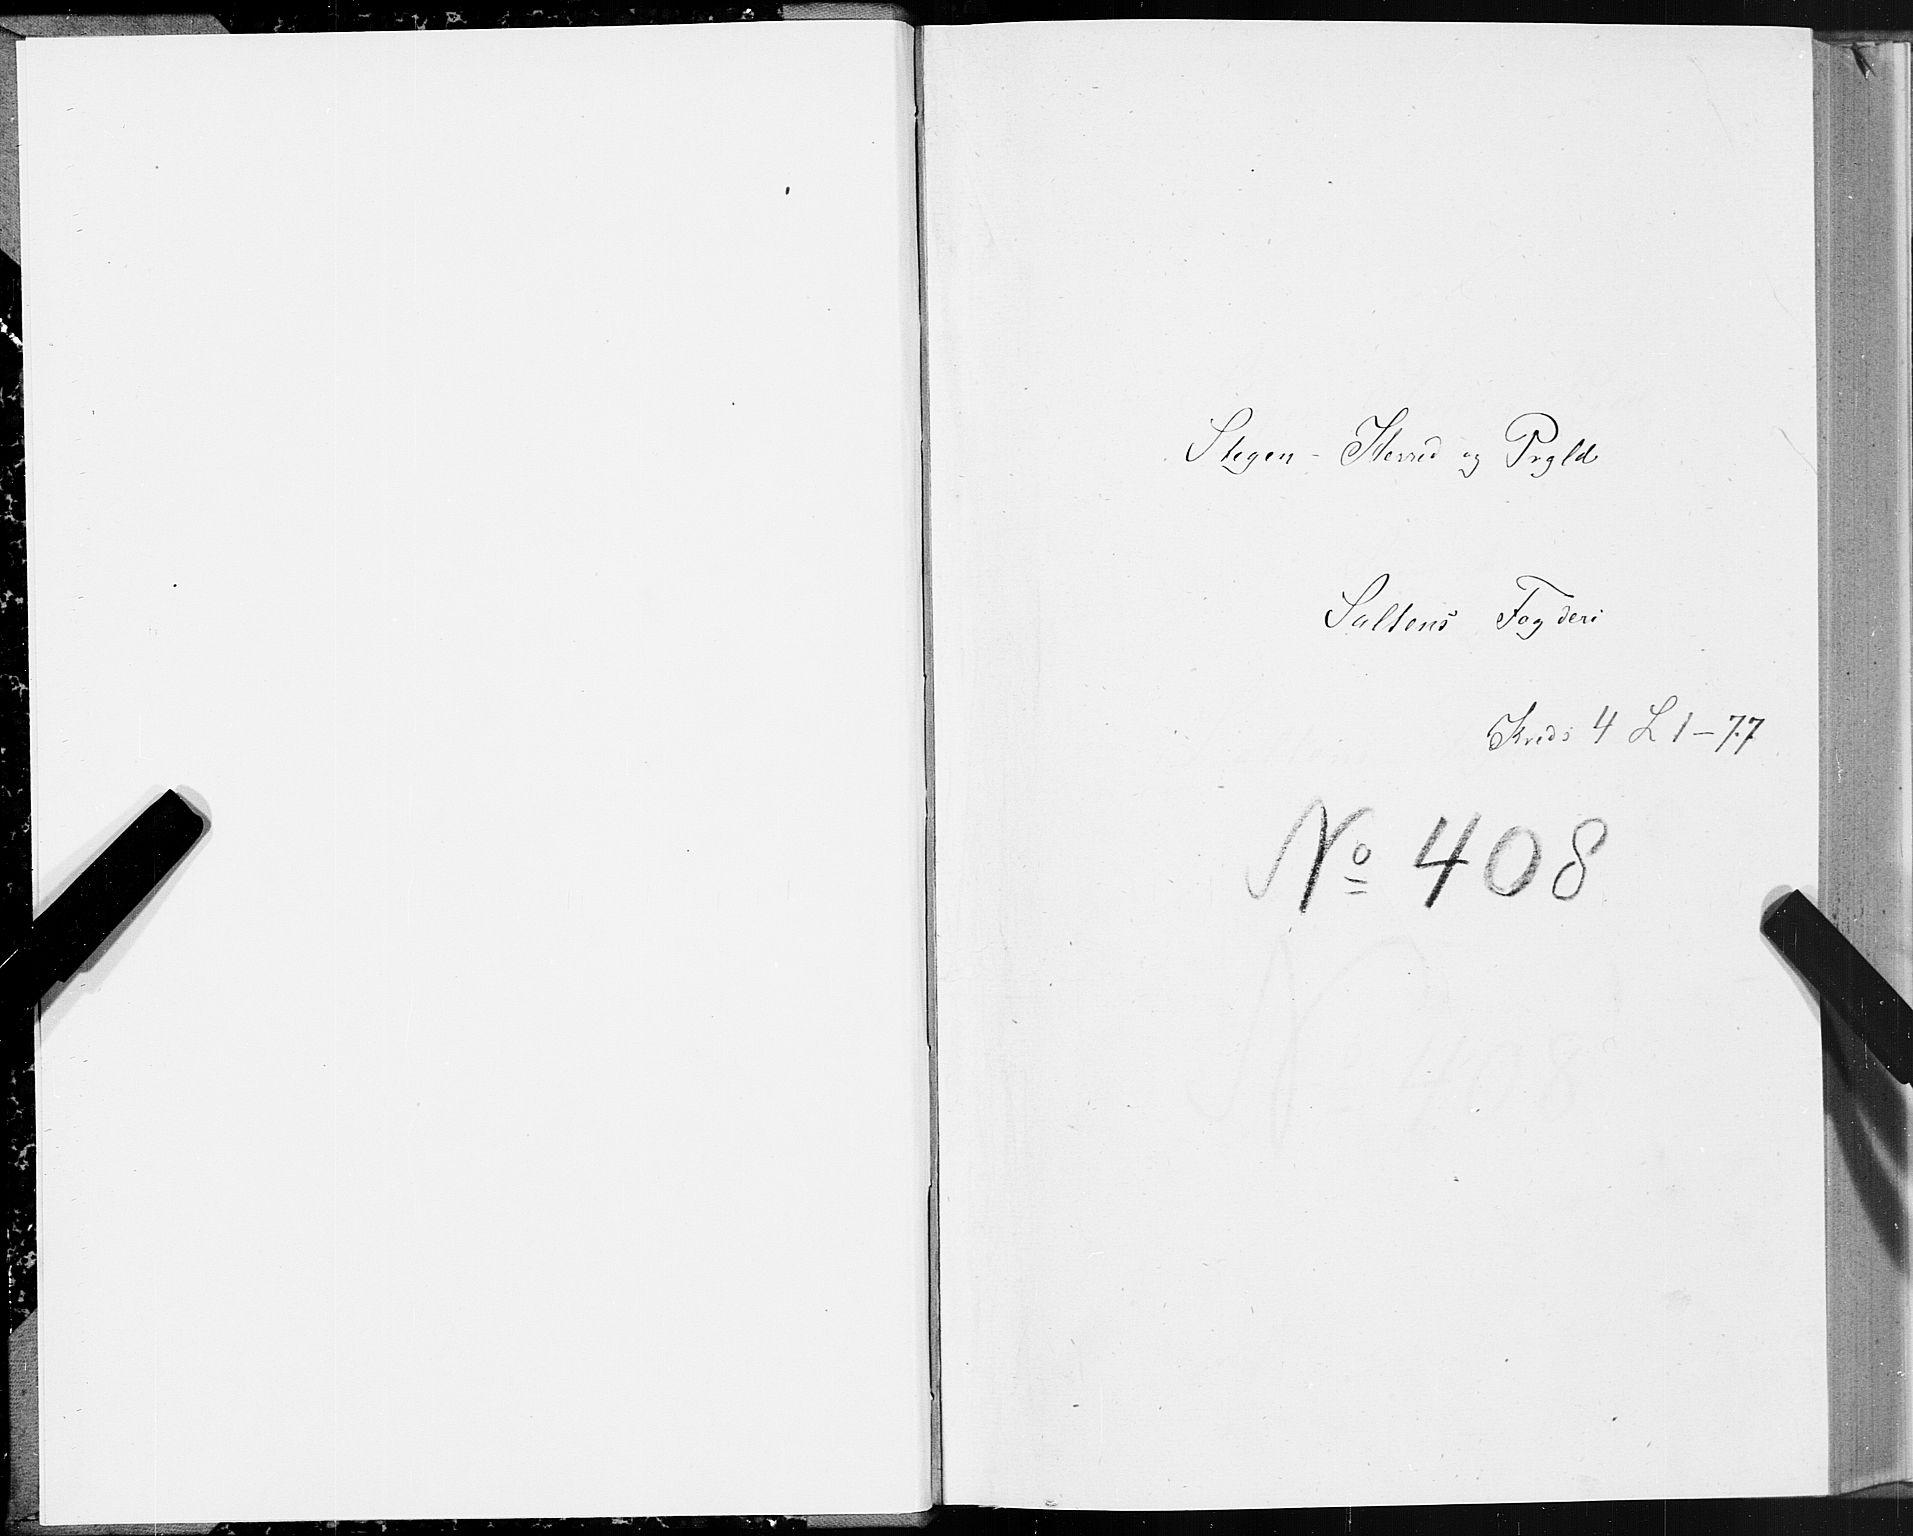 Stegen - Herred og Prgld
Saltens Fogderi
Kreds 4 L 1 - 77
No 408
No 408